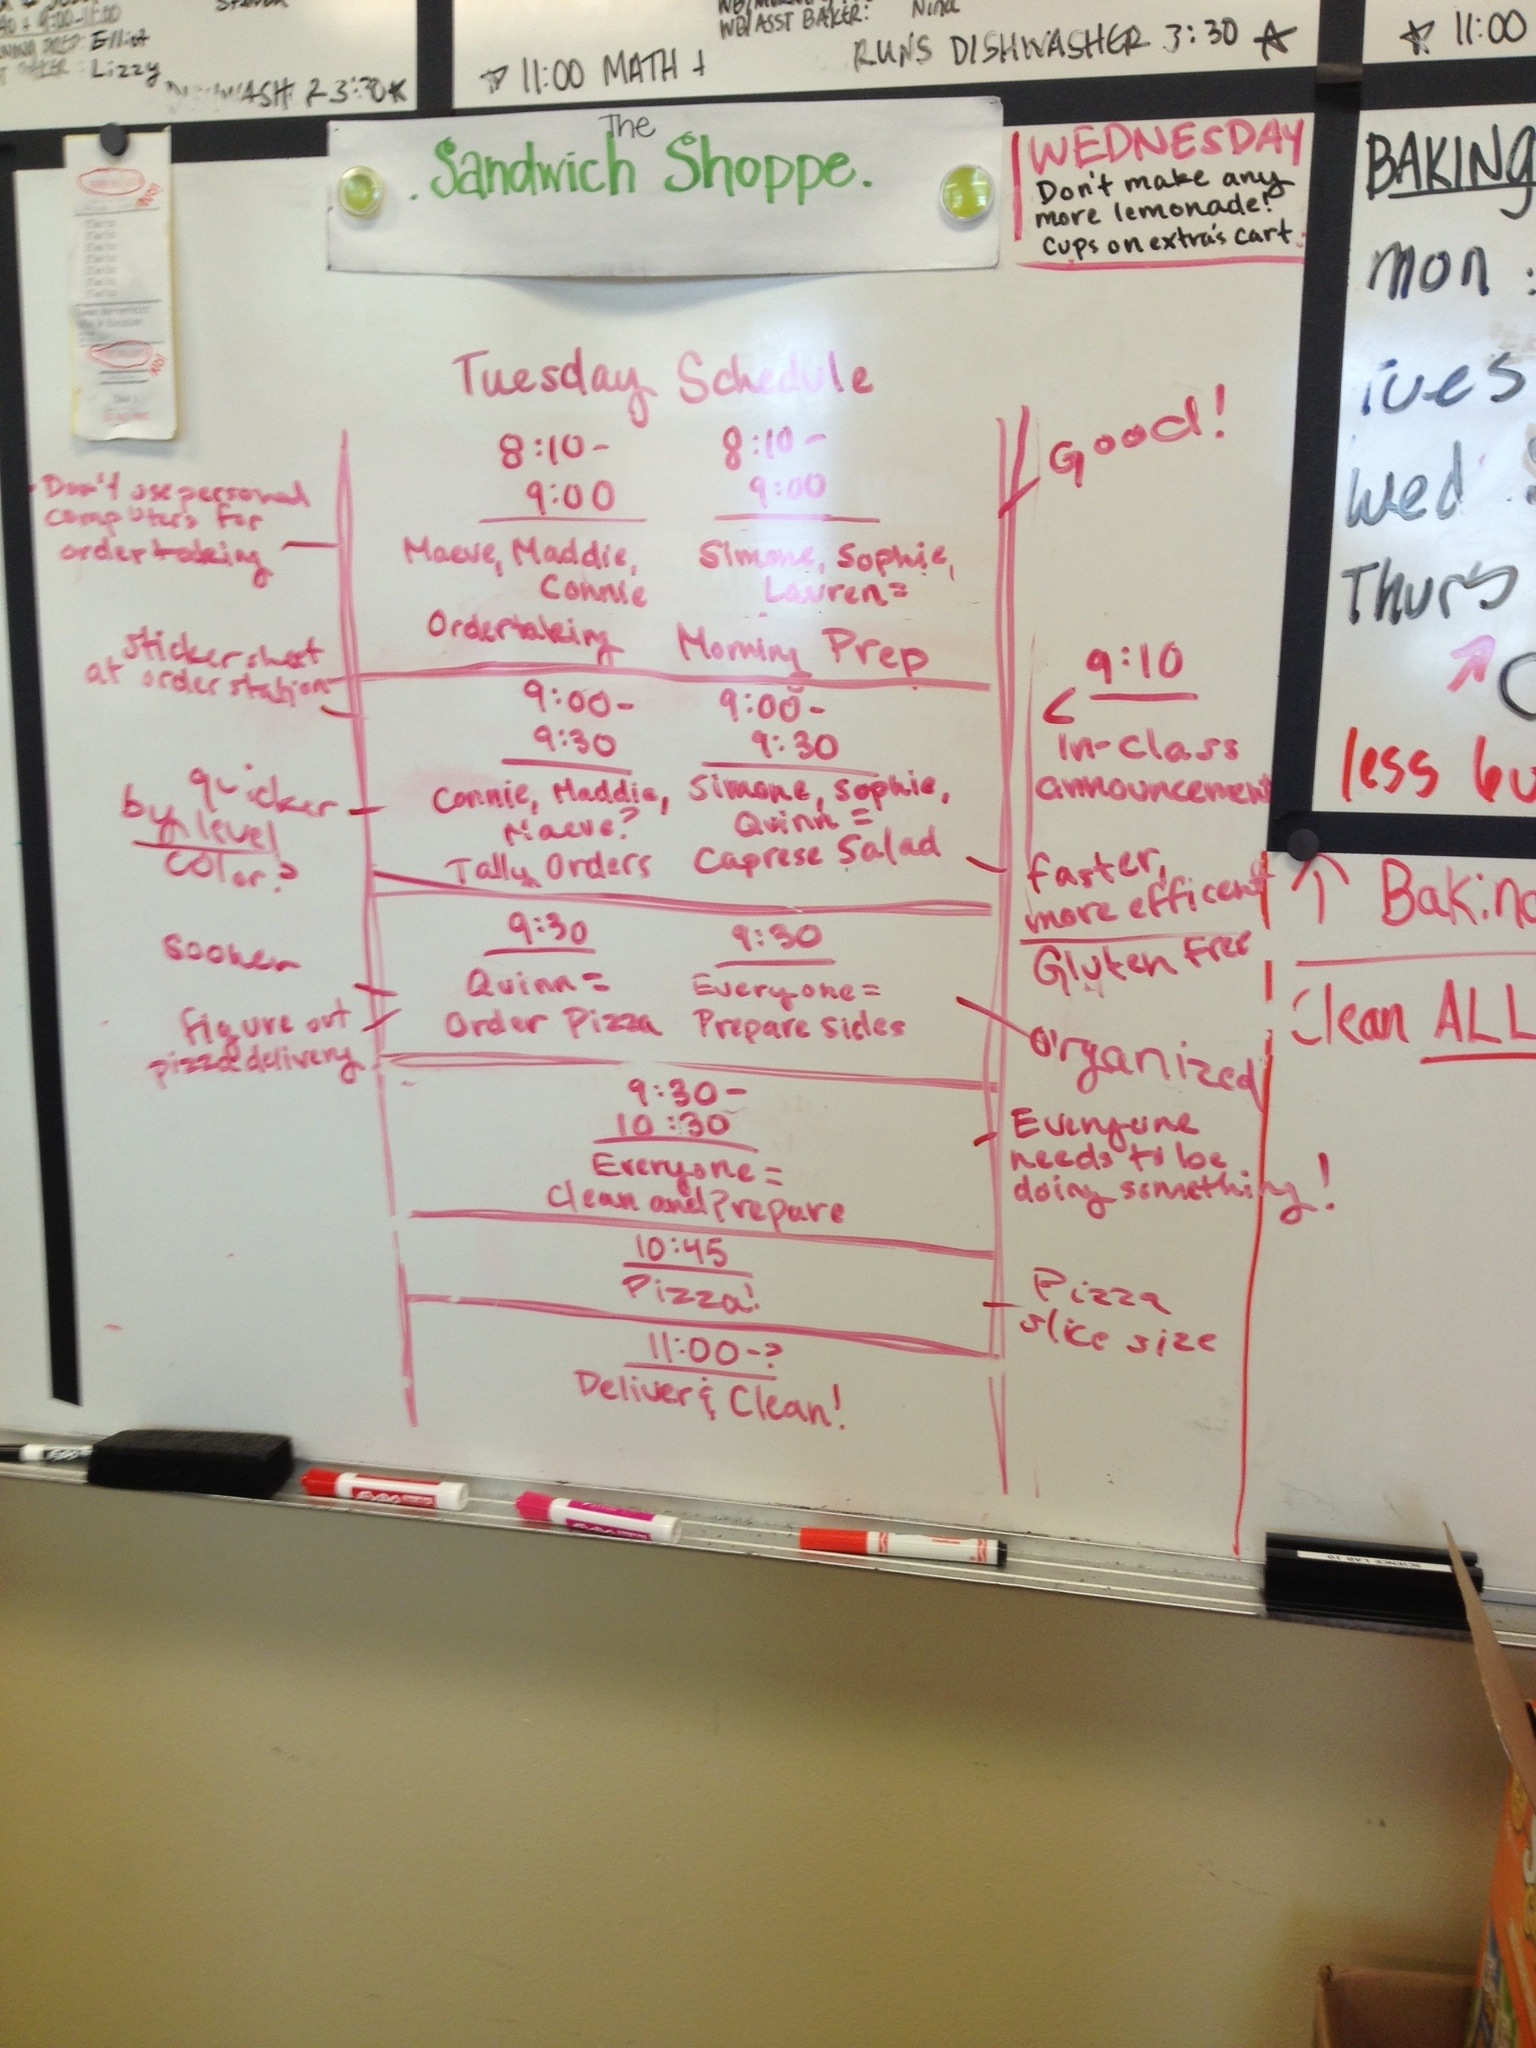 9:00-11:00
Elliot
Lizzy
WASH 3:30
WB/ASST BAKER: Nina
RUNS DISHWASHER 3:30 ☆
☆ 11:00 MATH +
☆ 11:00
The
Sandwich Shoppe.
WEDNESDAY
Don't make any
more lemonade!
Cups on extra's cart
BAKING
Mon :
Tues
Wed
Thurs
less
↑ Baking
Clean ALL
Tuesday Schedule
8:10-
9:00
Maeve, Maddie,
Connie
Ordertaking
8:10-
9:00
Simone, Sophie,
Lauren =
Morning Prep
9:00-
9:30
Connie, Maddie,
Maeve?
Tally Orders
9:00-
9:30
Simone, Sophie,
Quinn =
Caprese Salad
9:30
Quinn =
Order Pizza
9:30
Everyone =
Prepare sides
9:30-
10:30
Everyone =
Clean and Prepare
10:45
Pizza!
11:00-?
Deliver & Clean!
Don't use personal
computers for
order taking
sticker sheet
at order station
quicker
by level
color?
sooner
figure out
pizza delivery
Good!
9:10
In-class
announcement
faster,
more efficent
Gluten Free
Organized
Everyone
needs to be
doing something!
Pizza
slice size
SCIENCE LAB 10